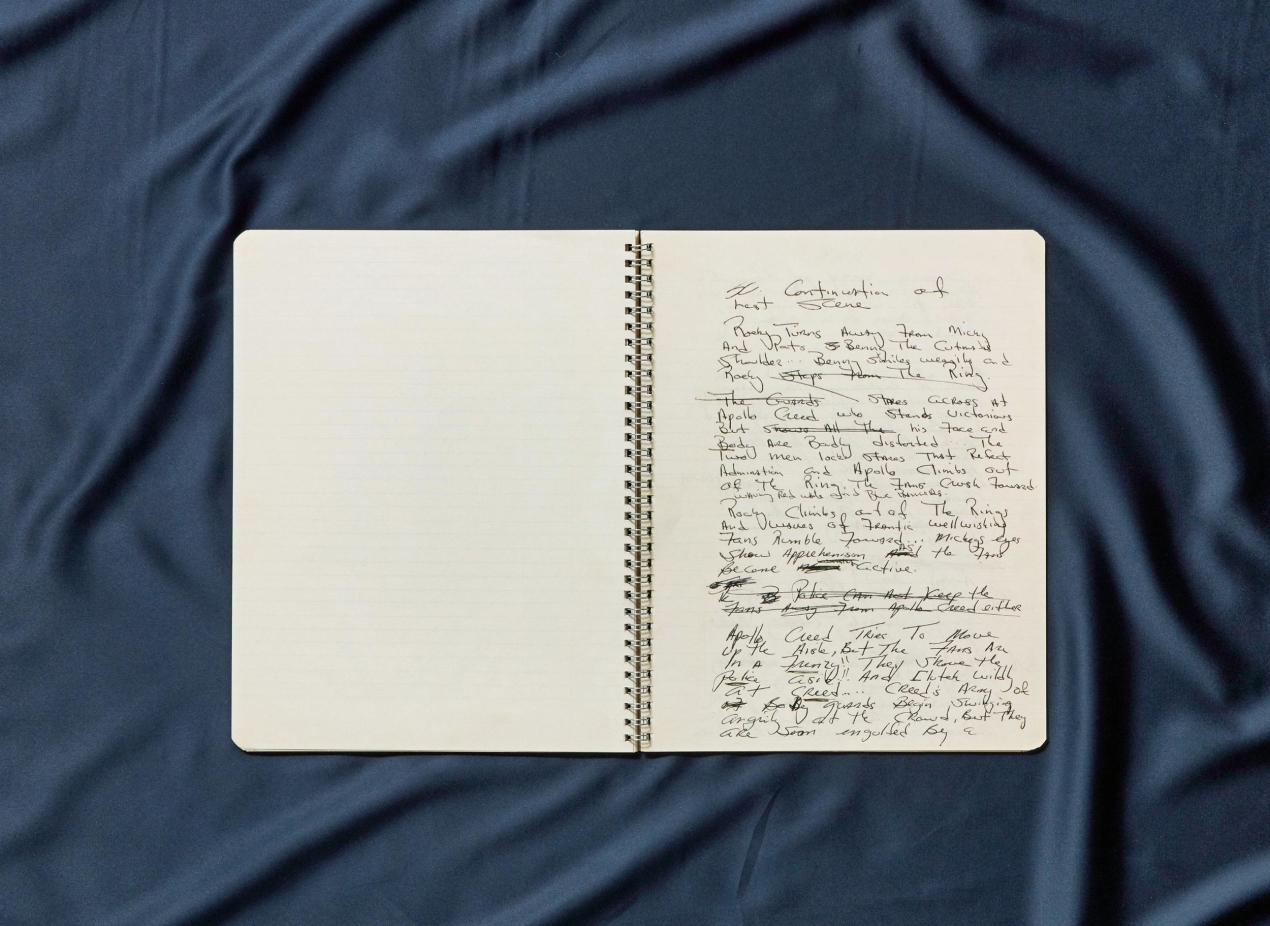 Continuation of
Last Scene
Rocky Turns Away From Micky
And Pats Benny The Cutmans
Shoulder... Benny Smiles wearily and
Rocky Steps From The Ring
The Guards Stares across At
Apollo Creed who Stands Victorious
But Shows All The his Face and
Body Are Badly distorted... The
Two men lock Stares That Reflect
Admiration and Apollo Climbs out
of The Ring. The Fans Crush Forward
waving Red white and Blue banners.
Rocky Climbs out of The Rings
And Waves of Frantic wellwishing
Fans Rumble Forward... Mickeys eyes
Show Apprehension As the Fans
become active.
Police Can Not Keep the
Fans Away From Apollo Creed either
Apollo Creed Tries To Move
Up the Aisle, But The Fans Are
In A Frenzy!! They Shove the
Police aside!! And Clutch wildly
at Creed.... Creed's Army of
Body guards Begin Swinging
angrily at the Crowd, But They
are soon engulfed by a